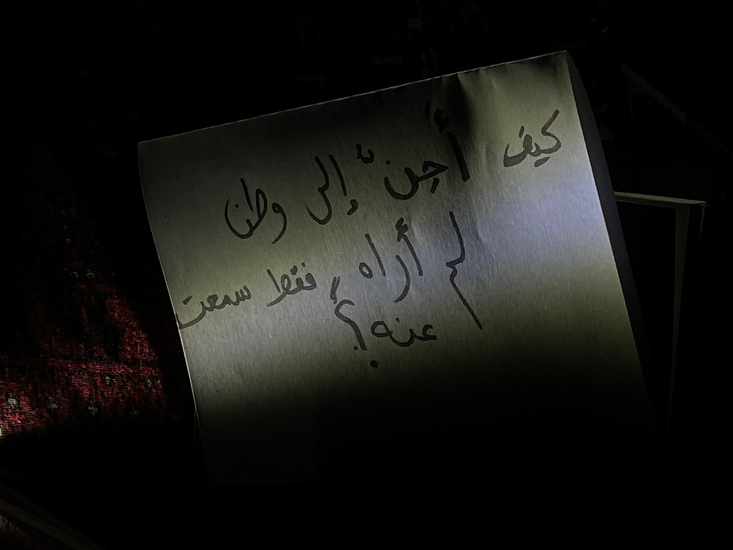 كيف أَحِنّ إلى وطن
لم أراه، فقط سمعت
عنه؟